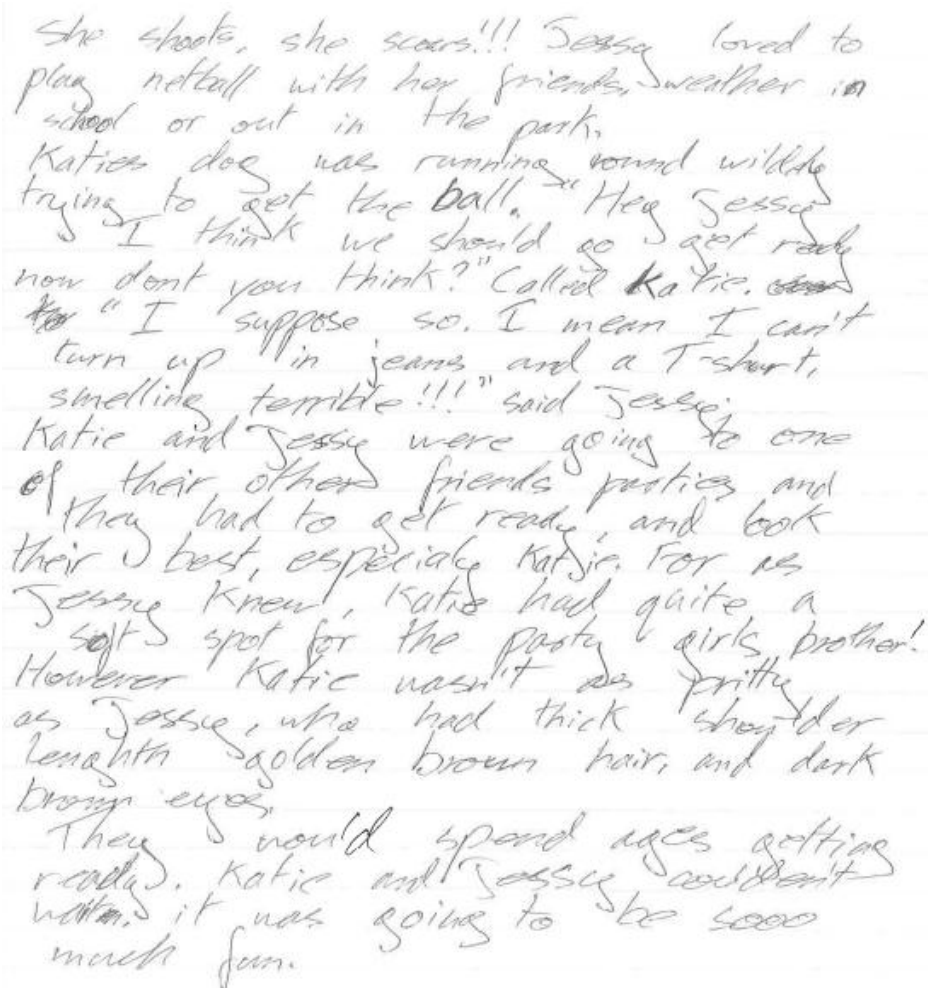 She shoots, she scoars!!! Jessy loved to
play netball with her friends, weather in
school or out in the park.
Katies dog was running round wildly
trying to get the ball. "Hey Jessy
I think we should go get ready
now dont you think?" Called Katie.
"I suppose so. I mean I can't
turn up in jeans and a T-shurt,
smelling terrible!!!" said Jessy.
Katie and Jessy were going to one
of their other friends parties and
they had to get ready, and look
their best, especialy Katie. For as
Jessy knew, Katie had quite a
soft spot for the party girls brother!
However Katie wasn't as pritty
as Jessy, who had thick shoulder
lenghth golden brown hair, and dark
brown eyes.
They would spend ages getting
ready. Katie and Jessy couldent
wait. it was going to be sooo
much fun.